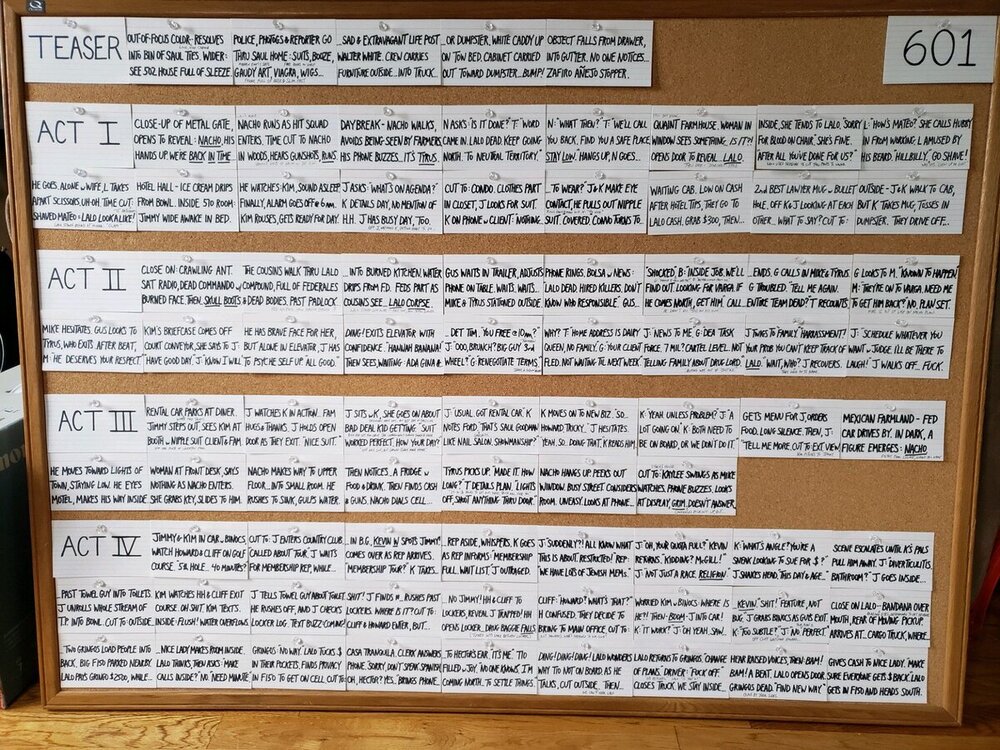 TEASER
OUT-OF-FOCUS COLOR - RESOLVES
INTO BIN OF SAUL TIES. WIDER:
SEE 502. HOUSE FULL OF SLEEZE.
POLICE, PHOTOGS & REPORTER GO
THRU SAUL HOME: SUITS, BOOZE,
GAUDY ART, VIAGRA, WIGS...
...SAD & EXTRAVAGANT LIFE POST
WALTER WHITE. CREW CARRIES
FURNITURE OUTSIDE... INTO TRUCK.
...OR DUMPSTER. WHITE CADDY UP
ON TOW BED. CABINET CARRIED
OUT TOWARD DUMPSTER. BUMP!
OBJECT FALLS FROM DRAWER,
INTO GUTTER. NO ONE NOTICES...
ZAFIRO AÑEJO STOPPER.
601
ACT I
CLOSE-UP OF METAL GATE,
OPENS TO REVEAL: NACHO, HIS
HANDS UP. WE'RE BACK IN TIME...
NACHO RUNS AS HIT SQUAD
ENTERS. TIME CUT TO NACHO
IN WOODS, HEARS GUNSHOTS, RUNS
DAYBREAK - NACHO WALKS,
AVOIDS BEING SEEN BY FARMERS
HIS PHONE BUZZES... IT'S TYRUS
N ASKS: IS IT DONE? T: "WORD
CAME IN LALO DEAD. KEEP GOING
NORTH. TO NEUTRAL TERRITORY."
N: "WHAT THEN?" T: "WE'LL CALL
YOU BACK. FIND YOU A SAFE PLACE.
STAY LOW." HANGS UP, N GOES...
QUAINT FARMHOUSE, WOMAN IN
WINDOW SEES SOMETHING. IS IT?!
OPENS DOOR TO REVEAL LALO.
INSIDE, SHE TENDS TO LALO. "SORRY
FOR BLOOD ON CHAIR." SHE'S FINE.
AFTER ALL YOU'VE DONE FOR US?
L: "HOW'S MATEO? SHE CALLS HUBBY
IN FROM WORKING. L AMUSED BY
HIS BEARD. "HILLBILLY." GO SHAVE!
HE GOES ALONE w WIFE, L TAKES
APART SCISSORS. UH-OH. TIME CUT:
SHAVED MATEO = LALO LOOKALIKE!
HOTEL HALL - ICE CREAM DRIPS
FROM BOWL. INSIDE 510 ROOM:
JIMMY WIDE AWAKE IN BED.
HE WATCHES KIM, SOUND ASLEEP
FINALLY, ALARM GOES OFF @ 6 AM.
KIM ROUSES, GETS READY FOR DAY.
J ASKS: "WHAT'S ON AGENDA?"
K DETAILS DAY, NO MENTION OF
H.H. J HAS BUSY DAY, TOO.
CUT TO: CONDO. CLOTHES PART
IN CLOSET, J LOOKS FOR SUIT.
K ON PHONE w CLIENT: "NOTHING...
...TO WEAR?" J & K MAKE EYE
CONTACT, HE PULLS OUT NIPPLE
SUIT. COVERED. CONVO TURNS TO...
WAITING CAB. LOW ON CASH
AFTER HOTEL TIPS, THEY GO TO
LALO CASH. GRAB $300, THEN...
2nd BEST LAWYER MUG w BULLET
HOLE. OFF K & J LOOKING AT EACH
OTHER. WHAT TO SAY? CUT TO:
OUTSIDE - J & K WALK TO CAB,
BUT K TAKES MUG, TOSSES IN
DUMPSTER. THEY DRIVE OFF...
ACT II
CLOSE ON: CRAWLING ANT.
SAT RADIO, DEAD COMMANDO w
BURNED FACE. THEN, SKULL BOOTS
THE COUSINS WALK THRU LALO
COMPOUND, FULL OF FEDERALES
& DEAD BODIES. PAST PADLOCK
...INTO BURNED KITCHEN. WATER
DRIPS FROM ED. FEDS PART AS
COUSINS SEE... LALO CORPSE.
GUS WAITS IN TRAILER, ADJUSTS
PHONE ON TABLE. WAITS. WAITS...
MIKE & TYRUS STATIONED OUTSIDE.
PHONE RINGS. BOLSA w NEWS:
LALO DEAD. HIRED KILLERS. DON'T
KNOW WHO RESPONSIBLE. GUS...
"SHOCKED." B: INSIDE JOB. WE'LL
FIND OUT. LOOKING FOR VARGA. IF
HE COMES NORTH, GET HIM. CALL...
...ENDS. G CALLS IN MIKE & TYRUS.
G TROUBLED. TELL ME AGAIN.
ENTIRE TEAM DEAD? T RECOUNTS
G LOOKS TO M. "KNOWN TO HAPPEN"
M: THEY'RE ON TO VARGA. NEED ME
TO GET HIM BACK? NO. PLAN SET.
MIKE HESITATES. GUS LOOKS TO
TYRUS, WHO EXITS. AFTER BEAT,
M: "HE DESERVES YOUR RESPECT"
KIM'S BRIEFCASE COMES OFF
COURT CONVEYOR. SHE SAYS TO J:
"HAVE GOOD DAY." J: KNOW I WILL
HE HAS BRAVE FACE FOR HER,
BUT ALONE IN ELEVATOR, J HAS
TO PSYCHE SELF UP. ALL GOOD.
DING! EXITS ELEVATOR WITH
CONFIDENCE. "HANNAH BANANA!"
THEN SEES, WAITING: ADA GINA &
... DET TIM. "YOU FREE @ 10am?"
J: ODD, BRUNCH? BIG GUY 3rd
WHEEL? G: RENEGOTIATE TERMS
WHY? T: "HOME ADDRESS IS DAIRY
QUEEN, NO FAMILY. G: YOUR CLIENT
FLED. NOT WAITING TIL NEXT WEEK.
J: NEWS TO ME. G: DEA TASK
FORCE. 7 MIL? CARTEL LEVEL. NOT
TELLING FAMILY ABOUT DRUG LORD
J TWIGS TO FAMILY. "HARASSMENT!
YOUR PROB YOU CAN'T KEEP TRACK OF
LALO." WAIT, WHO? J RECOVERS.
J: "SCHEDULE WHATEVER YOU
WANT w JUDGE. I'LL BE THERE TO
LAUGH!" J WALKS OFF... FUCK.
ACT III
RENTAL CAR PARKS AT DINER.
JIMMY STEPS OUT, SEES KIM AT
BOOTH w NIPPLE SUIT CLIENT & FAM
J WATCHES K IN ACTION... FAM
HUGS & THANKS. J HOLDS OPEN
DOOR AS THEY EXIT. "NICE SUIT."
J SITS w K, SHE GOES ON ABOUT
BAD DEAL KID GETTING. SUIT
WORKED PERFECT. HOW YOUR DAY?
J: "USUAL. GOT RENTAL CAR." K
NOTES FORD. "THAT'S SAUL GOODMAN
LIKE NAIL SALON. SHOWMANSHIP."
K MOVES ON TO NEW BIZ. "SO...
HOWARD TRICKY." J HESITATES.
"YEAH. SO. DOING THAT." K READS HIM
K: "YEAH. UNLESS PROBLEM?" J: "A
LOT GOING ON." K: BOTH NEED TO
BE ON BOARD, OR WE DON'T DO IT."
GETS MENU FOR J, ORDERS
FOOD. LONG SILENCE. THEN, J:
"TELL ME MORE. CUT TO EXT VIEW
MEXICAN FARMLAND - FED
CAR DRIVES BY. IN DARK, A
FIGURE EMERGES: NACHO
HE MOVES TOWARD LIGHTS OF
TOWN, STAYING LOW. HE EYES
MOTEL, MAKES HIS WAY INSIDE
WOMAN AT FRONT DESK SAYS
NOTHING AS NACHO ENTERS.
SHE GRABS KEY, SLIDES TO HIM.
NACHO MAKES WAY TO UPPER
FLOOR... INTO SMALL ROOM. HE
RUSHES TO SINK, GULPS WATER
THEN NOTICES... A FRIDGE w
FOOD & DRINK. THEN FINDS CASH
& GUNS. NACHO DIALS CELL...
TYRUS PICKS UP. MADE IT. HOW
LONG?" T DETAILS PLAN. "LIGHTS
OFF, SHOOT ANYTHING THRU DOOR."
NACHO HANGS UP. PEEKS OUT
WINDOW. BUSY STREET. CONSIDERS
ROOM. UNEASY. LOOKS AT PHONE...
CUT TO: KAYLEE SWINGS AS MIKE
WATCHES. PHONE BUZZES, LOOKS
AT DISPLAY, GRIM. DOESN'T ANSWER.
ACT IV
JIMMY & KIM IN CAR w BINOCS,
WATCH HOWARD & CLIFF ON GOLF
COURSE. "5th HOLE... 40 MINUTES?"
CUT TO: J ENTERS COUNTRY CLUB.
"CALLED ABOUT TOUR." J WAITS
FOR MEMBERSHIP REP, WHILE...
...IN B.G., KEVIN W SPOTS JIMMY!
COMES OVER AS REP ARRIVES.
"MEMBERSHIP TOUR?" K TAKES...
...REP ASIDE, WHISPERS, K GOES
AS REP INFORMS: "MEMBERSHIP
FULL. WAIT LIST." J OUTRAGED.
J: SUDDENLY?! ALL KNOW WHAT
THIS IS ABOUT. RESTRICTED!" REP:
WE HAVE LOTS OF JEWISH MEMS."
J: "OH, YOUR QUOTA FULL?" KEVIN
RETURNS. KIDDING? McGILL!"
J: NOT JUST A RACE, RELIGION
K: "WHAT'S ANGLE? YOU'RE A
SNEAK LOOKING TO SUE FOR $?"
J SHAKES HEAD, THIS DAY & AGE...
SCENE ESCALATES UNTIL K'S PALS
PULL HIM AWAY. J: DIVERTICULITIS
BATHROOM?" J GOES INSIDE...
...PAST TOWEL GUY INTO TOILETS.
J UNROLLS WHOLE STREAM OF
T.P. INTO BOWL. CUT TO: OUTSIDE
KIM WATCHES HH & CLIFF EXIT
COURSE. OH SHIT. KIM TEXTS.
INSIDE - FLUSH! WATER OVERFLOWS
J TELLS TOWEL GUY ABOUT TOILET.
HE RUSHES OFF, AND J CHECKS
LOCKER LOG. TEXT BUZZ: COMING!
SHIT! J FINDS #... RUSHES PAST
LOCKERS. WHERE IS IT?? CUT TO:
CLIFF & HOWARD ENTER, BUT...
NO JIMMY! HH & CLIFF TO
LOCKERS, REVEAL J TRAPPED! HH
OPENS LOCKER, DRUG BAGGIE FALLS
CLIFF: "HOWARD? WHAT'S THAT?"
H CONFUSED, THEY DECIDE TO
BRING TO MAIN OFFICE. CUT TO:
WORRIED KIM w BINOCS - WHERE IS
HE?! THEN - BOOM - J INTO CAR!
K: "IT WORK?" J: "OH YEAH. SAW...
...KEVIN." SHIT! FEATURE, NOT
BUG, J GRABS BINOCS AS GUYS EXIT.
K: "TOO SUBTLE?" J: NO. PERFECT
CLOSE ON LALO - BANDANA OVER
MOUTH, REAR OF MOVING PICKUP.
ARRIVES AT... CARGO TRUCK, WHERE...
...TWO GRINGOS LOAD PEOPLE INTO
BACK, BIG FISD PARKED NEARBY.
LALO PAYS GRINGO $2500, WHILE...
...NICE LADY MAKES ROOM INSIDE.
LALO THINKS, THEN ASKS: MAKE
CALLS INSIDE?" NO. NEED MINUTE
GRINGOS: NO WAY. LALO TUCKS $
IN THEIR POCKETS, FINDS PRIVACY
IN FISD TO GET ON CELL. CUT TO:
CASA TRANQUILA, CLERK ANSWERS
PHONE. SORRY, DON'T SPEAK SPANISH
OH, HECTOR? YES. BRINGS PHONE...
...TO HECTOR'S EAR. "IT'S ME." TIO
FILLED w JOY. "NO ONE KNOWS. I'M
COMING NORTH. TO SETTLE THINGS."
DING! DING! DING! LALO WONDERS
WHY TIO NOT ON BOARD AS HE
TALKS, CUT OUTSIDE, THEN...
LALO RETURNS TO GRINGOS. CHANGE
OF PLANS. DRIVER: "FUCK OFF."
CLOSES TRUCK. WE STAY INSIDE...
HEAR RAISED VOICES, THEN BAM!
BAM! A BEAT. LALO OPENS DOOR,
GRINGOS DEAD. "FIND NEW WAY."
GIVES CASH TO NICE LADY. MAKE
SURE EVERYONE GETS $ BACK. LALO
GETS IN FISD AND HEADS SOUTH.